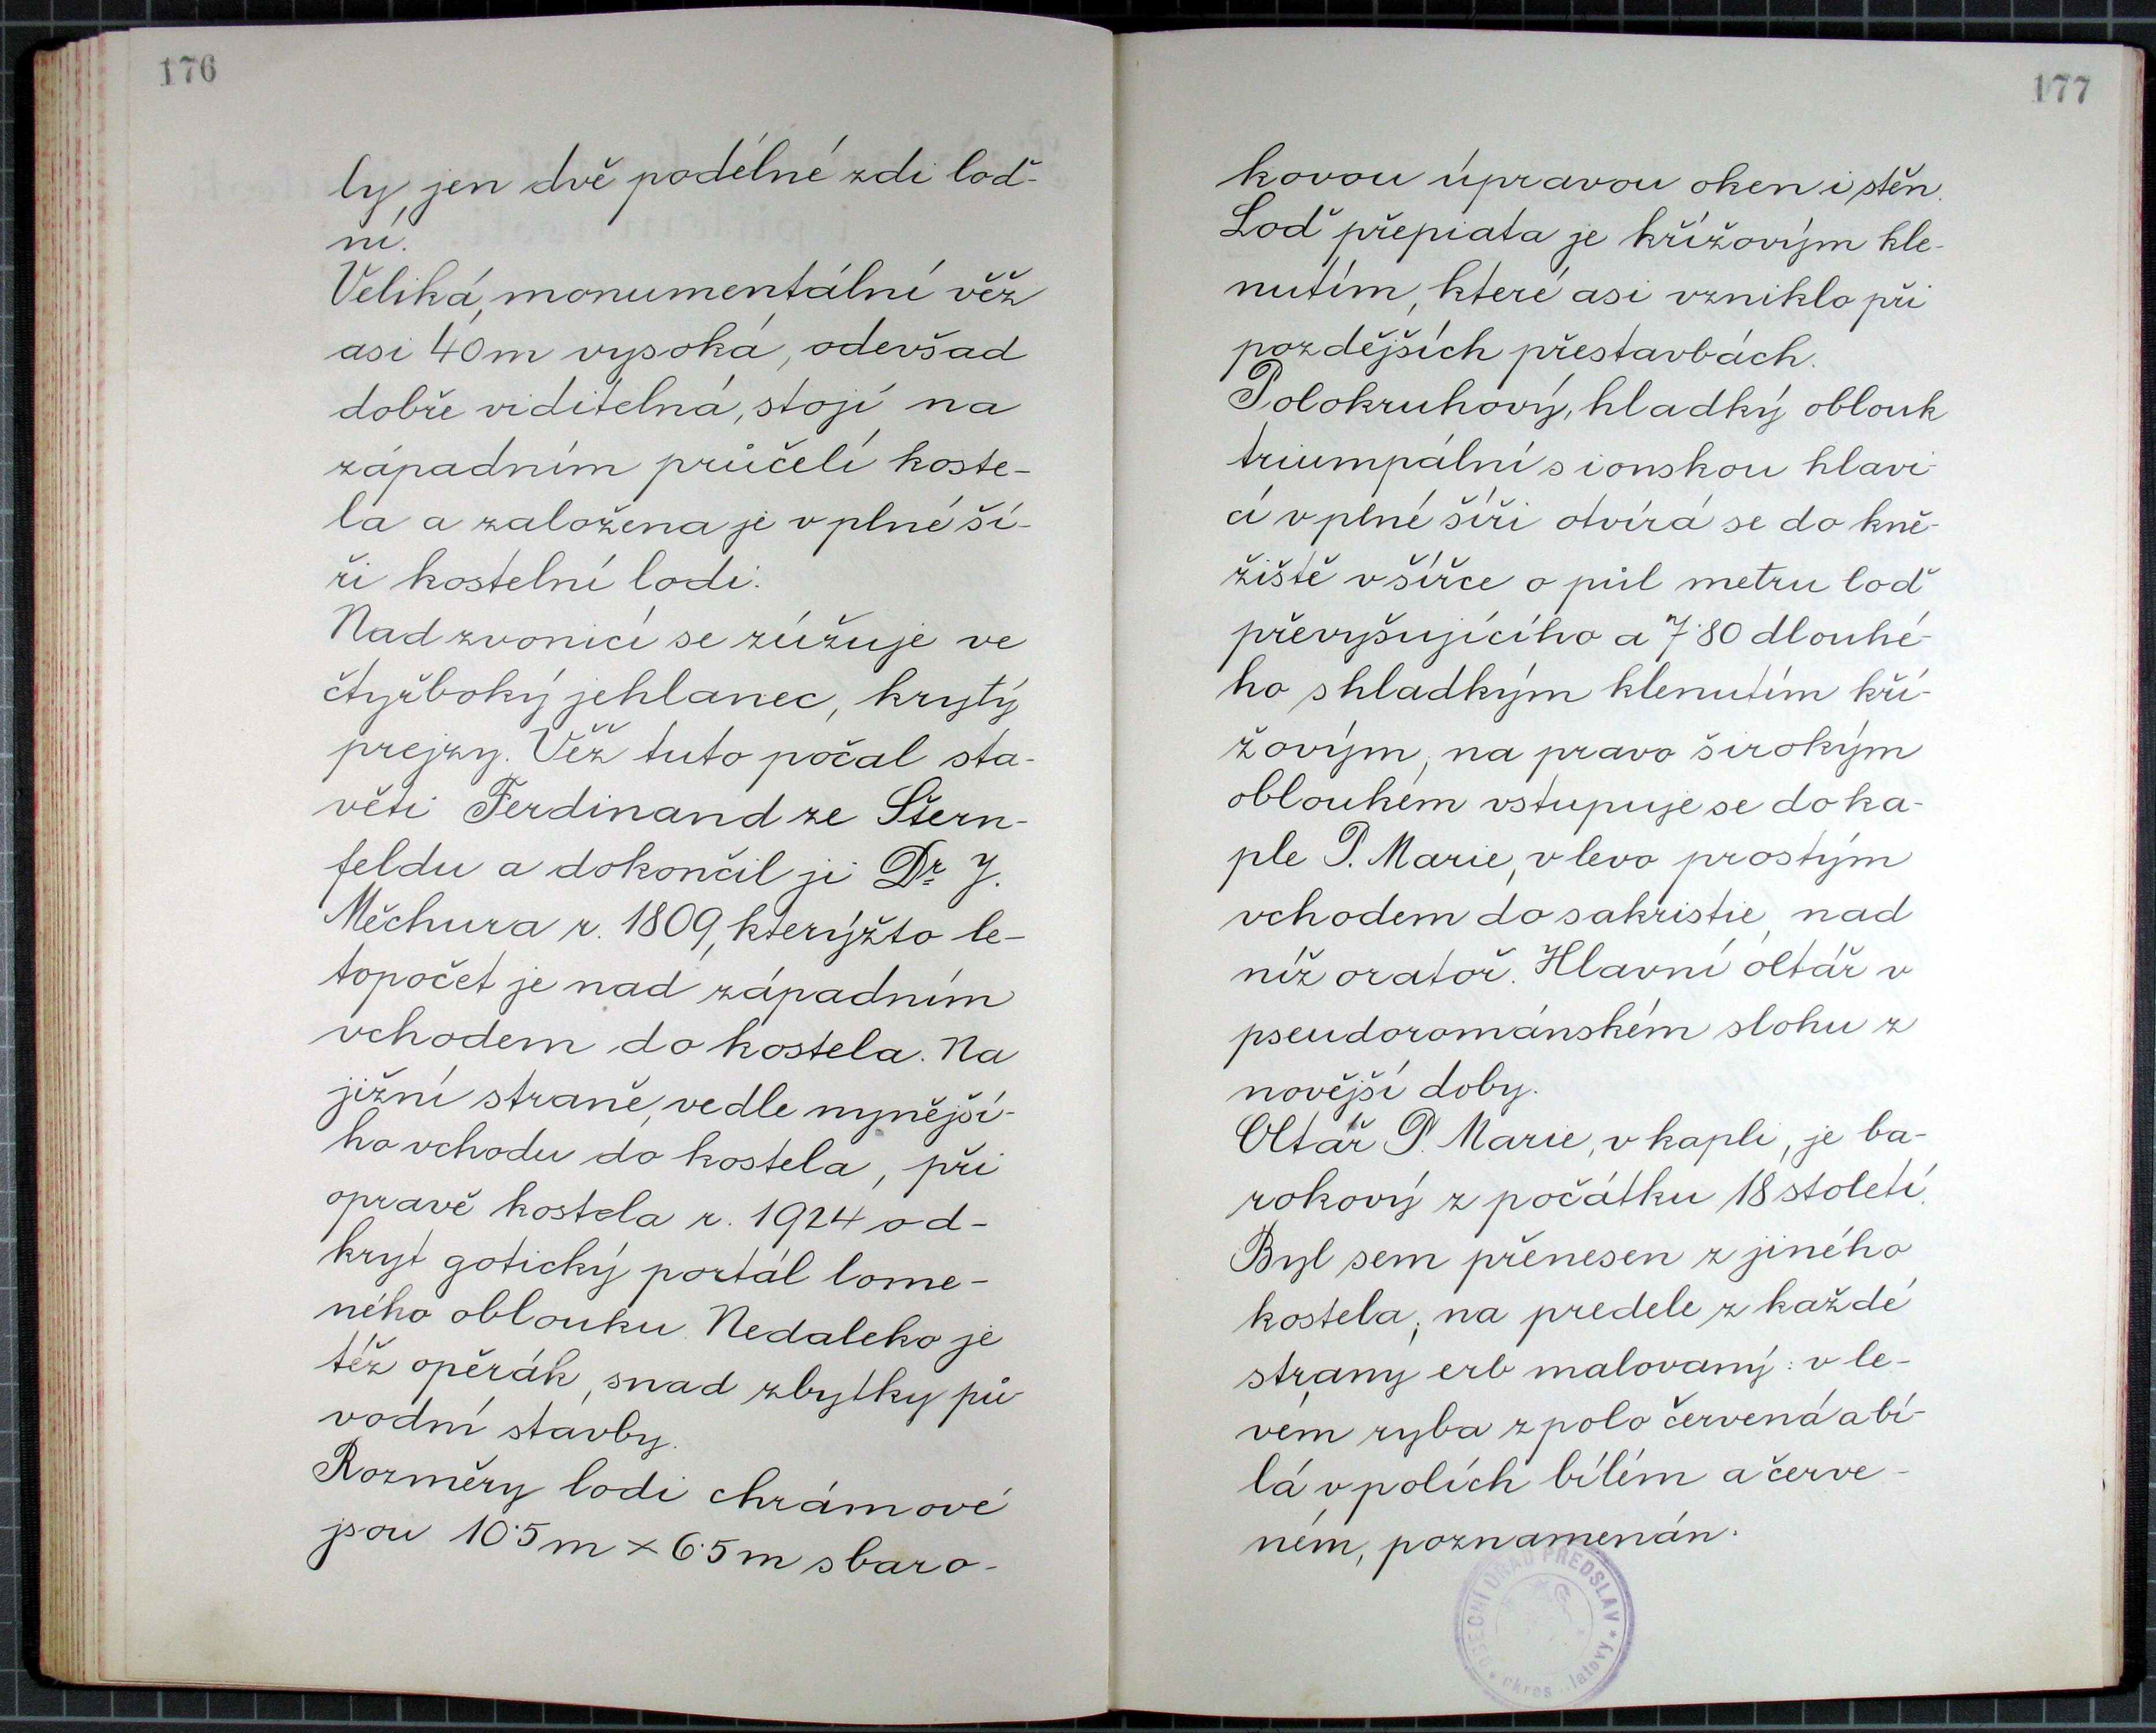 176
ly, jen dvě podélné zdi loď-
ní.
Veliká, monumentální věž
asi 40 m vysoká, odevšad
dobře viditelná, stojí na
západním průčelí koste-
la a založena je v plné ší-
ři kostelní lodi.
Nad zvonicí se zúžuje ve
čtyřboký jehlanec, krytý
prejzy. Věž tuto počal sta-
věti Ferdinand ze Štern-
feldu a dokončil ji Dr. J.
Měchura r. 1809, kterýžto le-
topočet je nad západním
vchodem do kostela. Na
jižní straně, vedle nynější-
ho vchodu do kostela, při
opravě kostela r. 1924 od-
kryt gotický portál lome-
ného oblouku. Nedaleko je
též opěrák, snad zbytky pů-
vodní stavby.
Rozměry lodi chrámové
jsou 10·5 m × 6·5 m s baro-
177
kovou úpravou oken i stěn.
Loď přepiata je křížovým kle-
nutím, které asi vzniklo při
pozdějších přestavbách.
Polokruhový, hladký oblouk
triumpální s ionskou hlavi-
cí v plné šíři otvírá se do kně-
žiště v šířce o půl metru loď
převyšujícího a 7·80 dlouhé-
ho s hladkým klenutím kří-
žovým, na pravo širokým
obloukem vstupuje se do ka-
ple P. Marie, v levo prostým
vchodem do sakristie, nad
níž oratoř. Hlavní oltář v
pseudorománském slohu z
novější doby.
Oltář P. Marie, v kapli, je ba-
rokový z počátku 18 století.
Byl sem přenesen z jiného
kostela; na predele z každé
strany erb malovaný: v le-
vém ryba zpolo červená a bí-
lá v polích bílém a červe-
ném, poznamenán.
OBECNÍ ÚŘAD PŘEDSLAV
okres